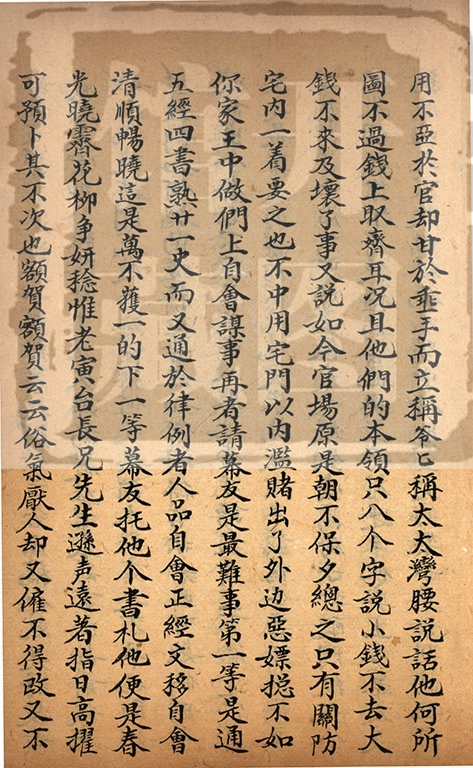 用不亞於官却甘於垂手而立稱爷〻稱太太灣腰説話他何所
圖不過錢上取齊耳况且他們的本領只八个字説小錢不去大
錢不來及壞了事又説如今官場原是朝不保夕總之只有關防
宅内一着要之也不中用宅門以内濫賭出了外边惡嫖搃不如
你家王中做們上自會謀事再者請幕友是最難事第一等是通
五經四書熟廿一史而又通於律例者人品自會正經文移自會
清順暢曉這是萬不獲一的下一等幕友托他个書札他便是春
光曉霽花柳争妍稔惟老寅台長兄先生遜声遠著指日高擢
可預卜其不次也額賀額賀云云俗氣厭人却又僱不得改又不